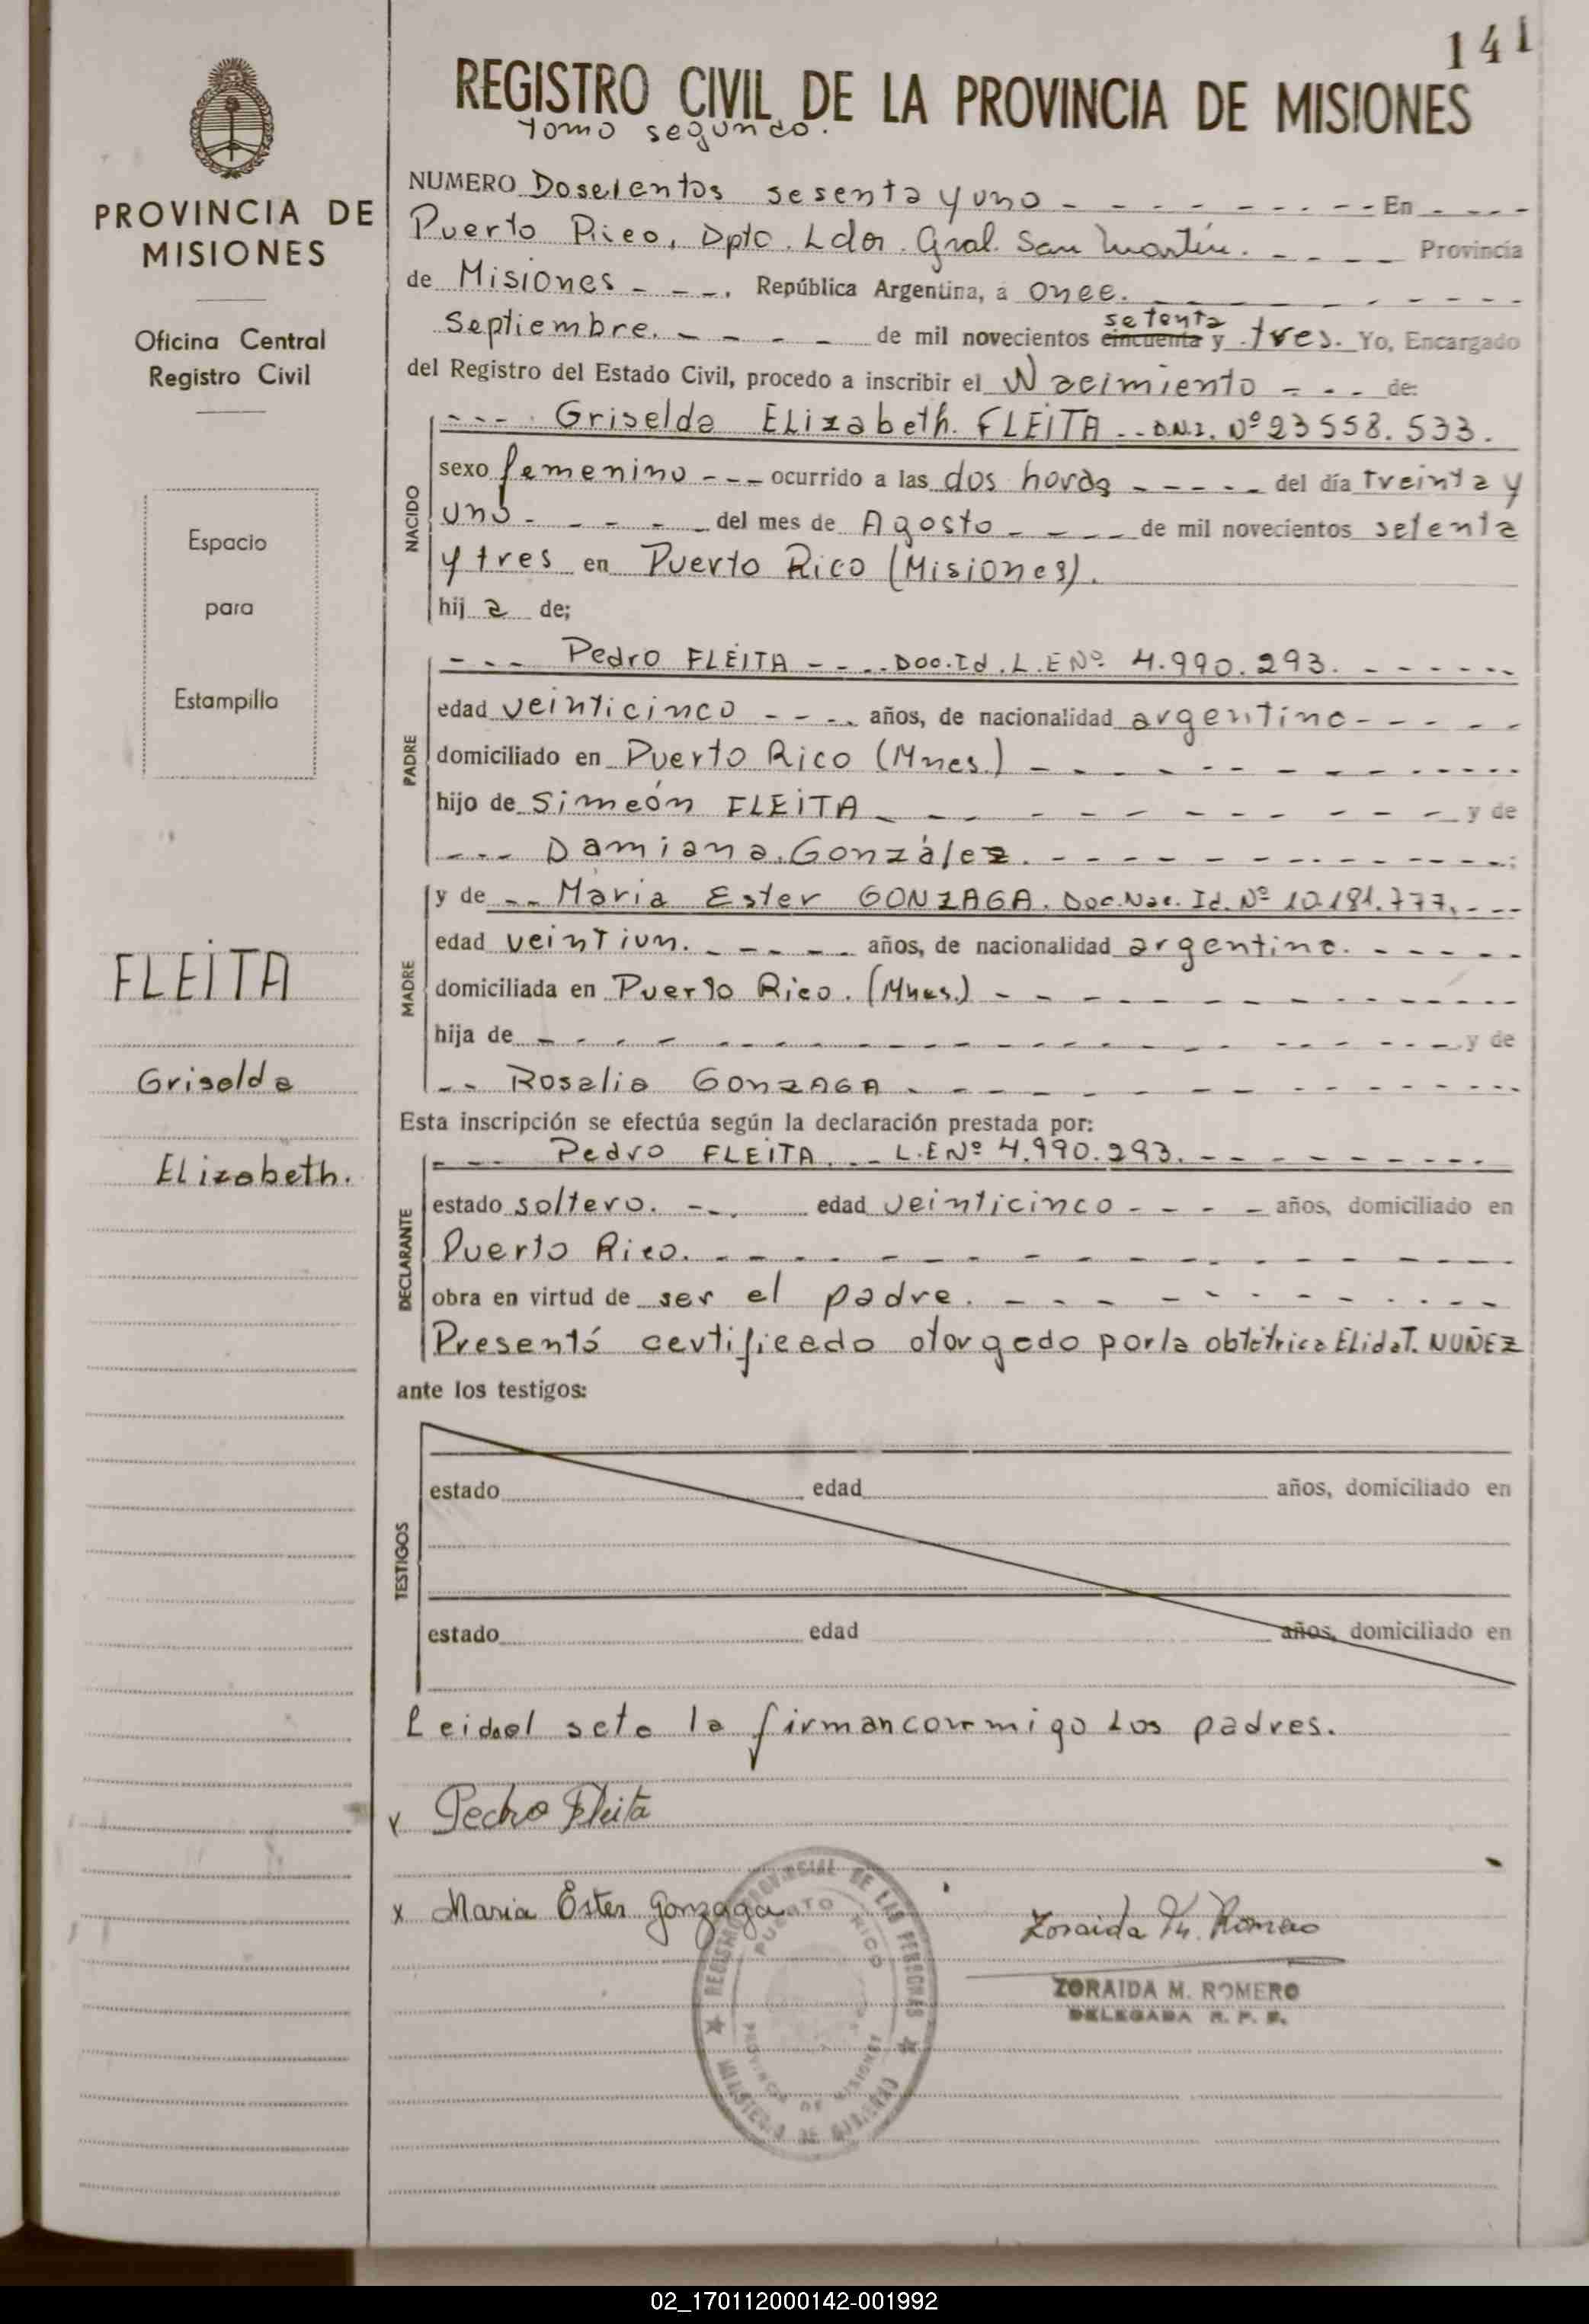 141
REGISTRO CIVIL DE LA PROVINCIA DE MISIONES
tomo segundo.
PROVINCIA DE
MISIONES
Oficina Central
Registro Civil
Espacio
para
Estampilla
FLEITA
Griselda
ELizabeth.
NUMERO Doscientos sesenta y uno - - - - - - - - - En - - - -
Puerto Rico, Dpto. Ldor. Gral. San Martín. - - - - Provincia
de Misiones - - -. República Argentina, a once. - - - - - - -
Septiembre. - - - - - de mil novecientos setenta cincuenta y tres. Yo, Encargado
del Registro del Estado Civil, procedo a inscribir el Nacimiento - - - de:
NACIDO
- - - - Griselda ELizabeth. FLEITA - - D.N.I. Nº 23558.533.
sexo femenino - - - ocurrido a las dos horas - - - - - del día treinta y
uno - - - - - del mes de Agosto - - - - de mil novecientos setenta
y tres en Puerto Rico (Misiones).
hij a de;
PADRE
- - - Pedro FLEITA - - - - Doc. Id. L.E Nº 4.990.293. - - - - - -
edad veinticinco - - - - años, de nacionalidad argentina - - - - -
domiciliado en Puerto Rico (Mnes.) - - - - - - - - - - - -
hijo de Simeón FLEITA - - - - - - - - - - - y de
- - - Damiana González. - - - - - - - - - - - - - :
MADRE
y de - - Maria Ester GONZAGA. Doc. Nac. Id. Nº 10.181.777. - - -
edad veintiun. - - - - - años, de nacionalidad argentina. - - - - -
domiciliada en Puerto Rico. (Mnes.) - - - - - - - - - - - -
hija de - - - - - - - - - - - - - - - - - - y de
- - Rosalia GONZAGA - - - - - - - - - - -
Esta inscripción se efectúa según la declaración prestada por:
DECLARANTE
- - - Pedro FLEITA. - - L.E Nº 4.990.293. - - - - - - - -
estado soltero. - - - edad veinticinco - - - - años, domiciliado en
Puerto Rico. - - - - - - - - - - - - -
obra en virtud de ser el padre. - - - - - - - - - - - -
Presentó certificado otorgado por la obtétrica ELida T. NUÑEZ
ante los testigos:
TESTIGOS
estado edad años, domiciliado en
estado edad años, domiciliado en
Leida el acta la firman conmigo Los padres.
x Pedro Fleita
x Maria Ester Gonzaga
Zoraida M. Romero
ZORAIDA M. ROMERO
DELEGADA R. P. P.
REGISTRO PROVINCIAL DE LAS PERSONAS
PUERTO RICO
PROVINCIA DE MISIONES
MINISTERIO DE GOBIERNO
02_170112000142-001992